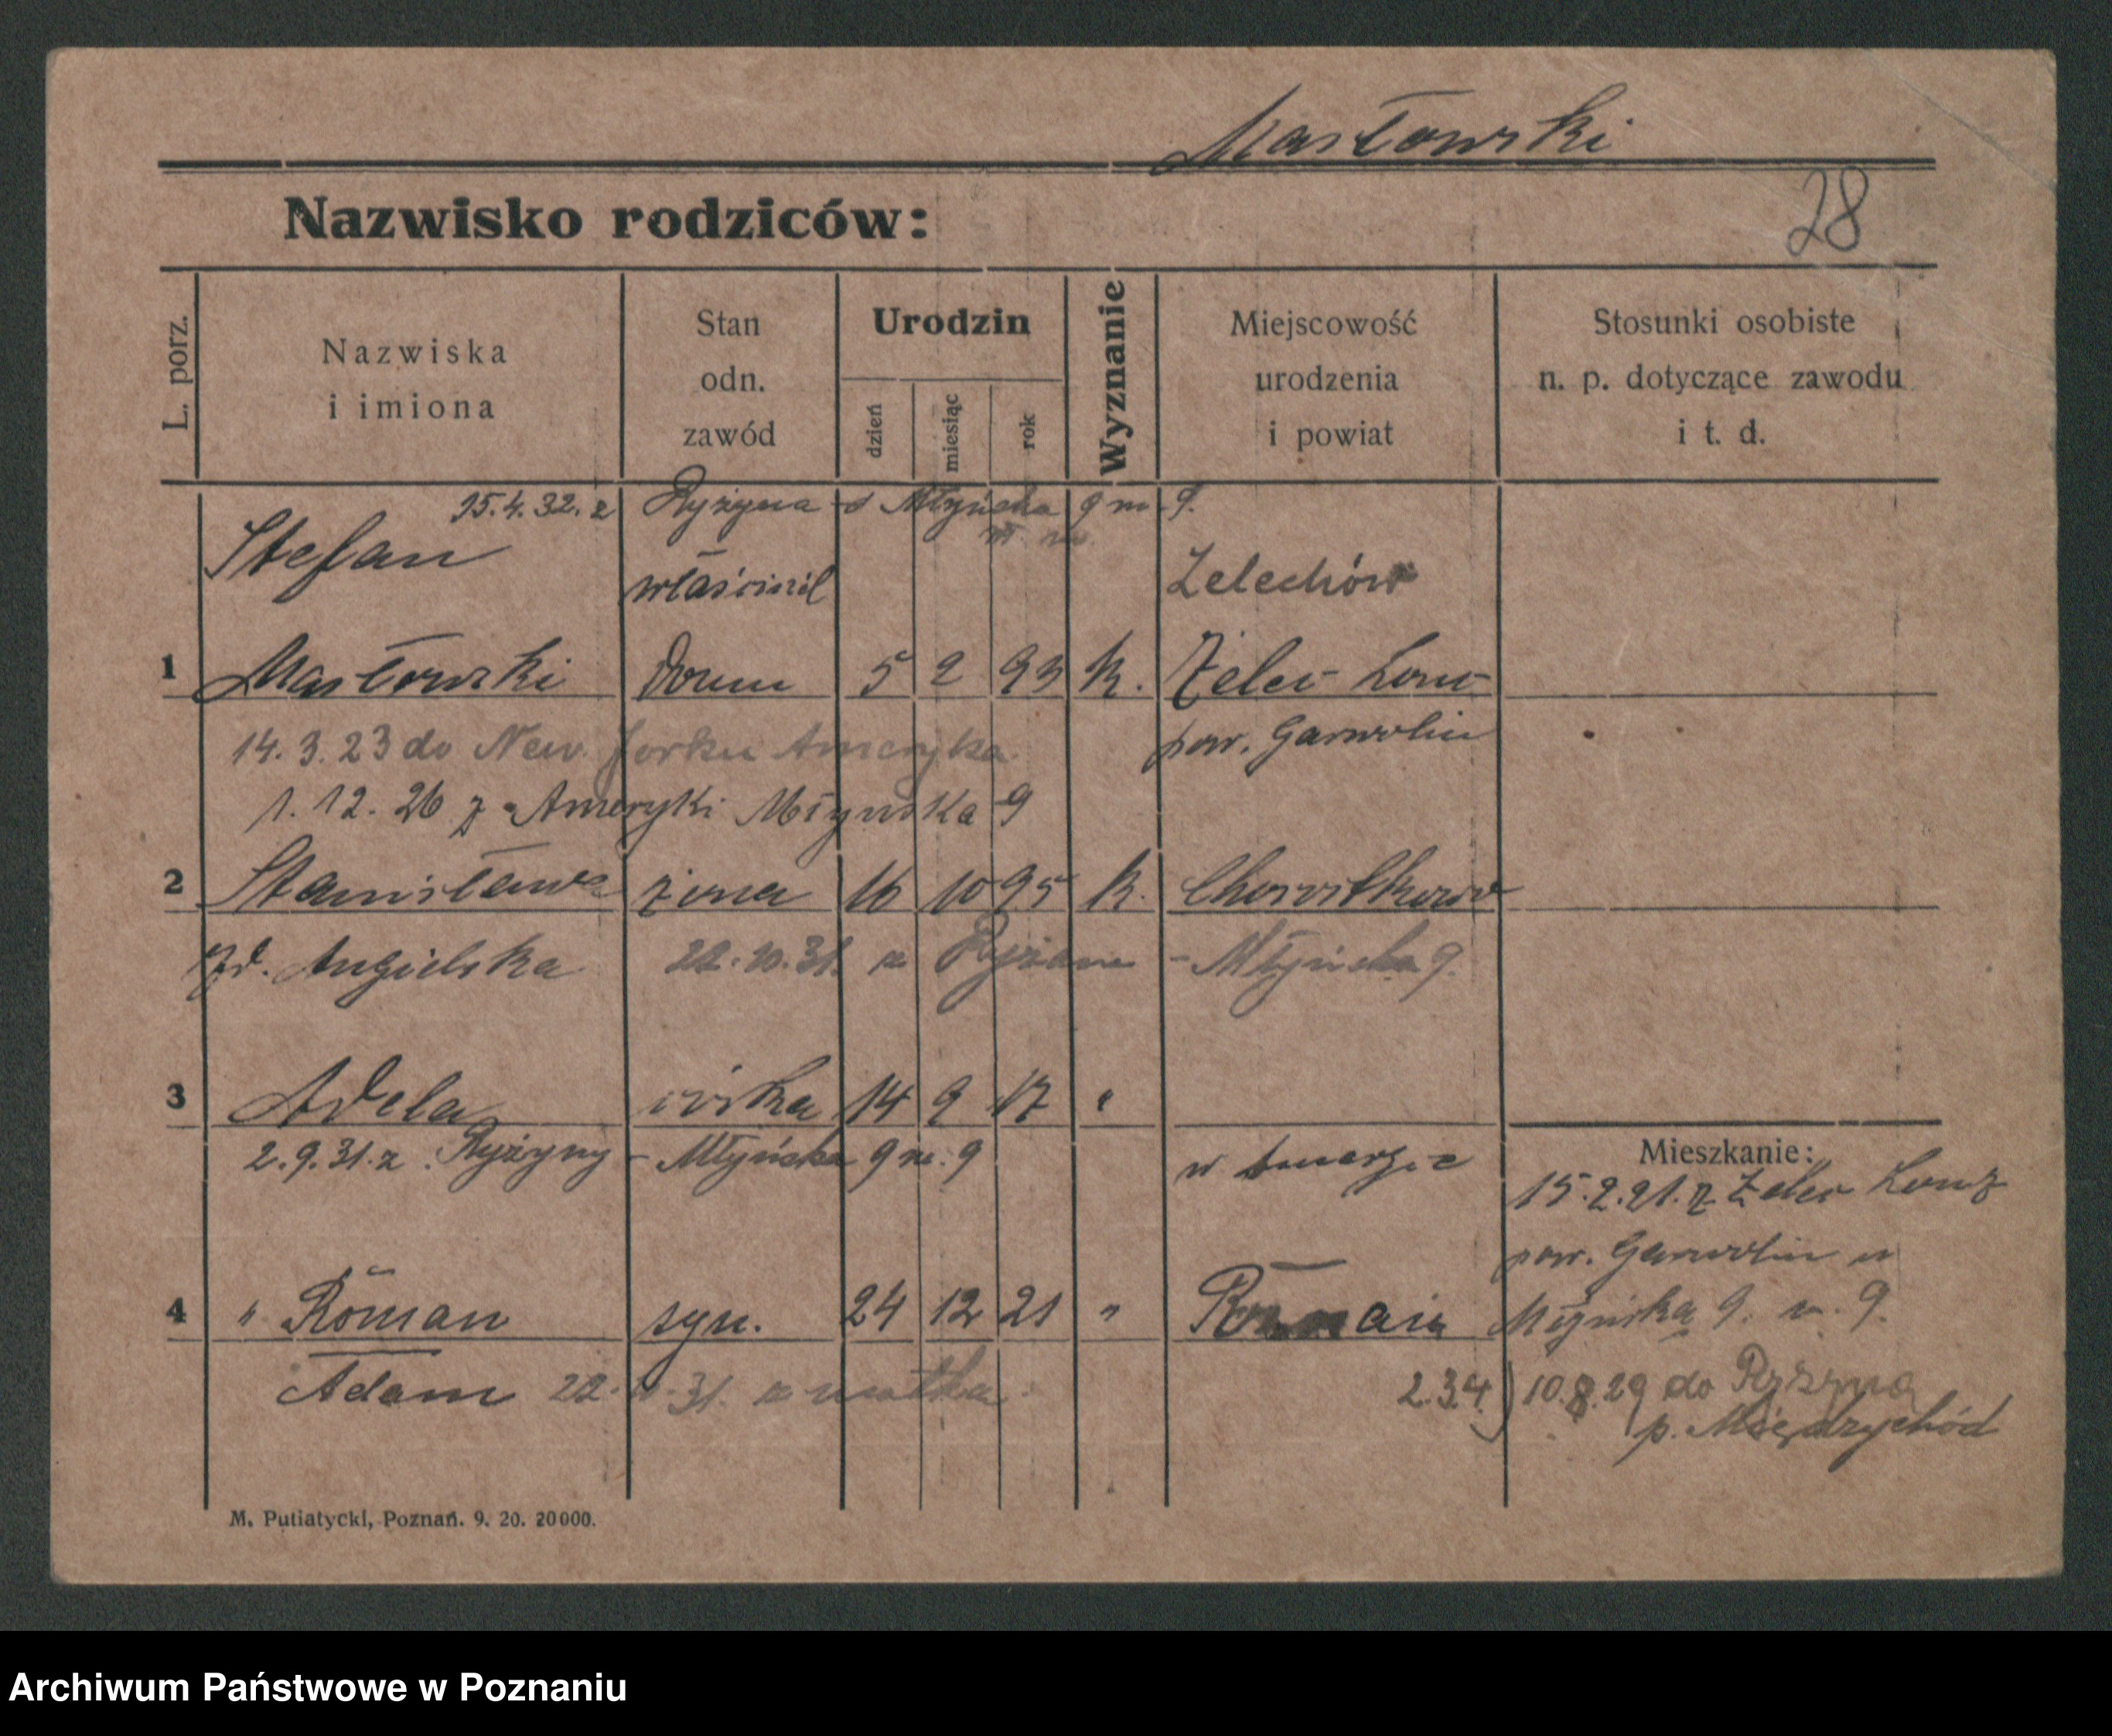 Masłowski
28
Nazwisko rodziców:
L. porz.
Nazwiska
i imiona
Stan
odn.
zawód
Urodzin
dzień
miesiąc
rok
Wyznanie
Miejscowość
urodzenia
i powiat
Stosunki osobiste
n. p. dotyczące zawodu
i t. d.
15.4.32. z Ryżyna - Młyńska 9 m 9.
Stefan właścicil Zelechów
1 Masłowski domu 5 2 93 k. Żelev
14.3.23 do New Jorku Ameryka pow. Garwolin
1.12.26 z Ameryki Młynska 9
2 Stanisława żona 16 10 95 k.
zd. Angielska 22.10.31. z - Młyńska 9.
3 Adela córka 14 9 17 "
2.9.31. z Ryżyny - Młyńska 9 m. 9 w
Mieszkanie:
15.2.21. z
pow. Garwolin
4 " Roman syn. 24 12 21 " Poznań Młyńska 9. 9.
Adam 22. 31. z matką 2.3.4.) 10.8.29 do Ryżyna
p. Międzychód
M. Putiatycki, Poznań. 9. 20. 20000.
Archiwum Państwowe w Poznaniu